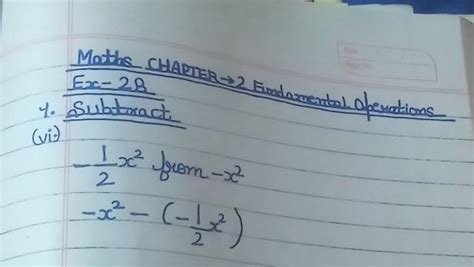 Maths CHAPTER→2 Fundamental Operations
Ex-2B
4. Subtract
(vi)
-1/2 x² from -x²
-x² - (-1/2 x²)